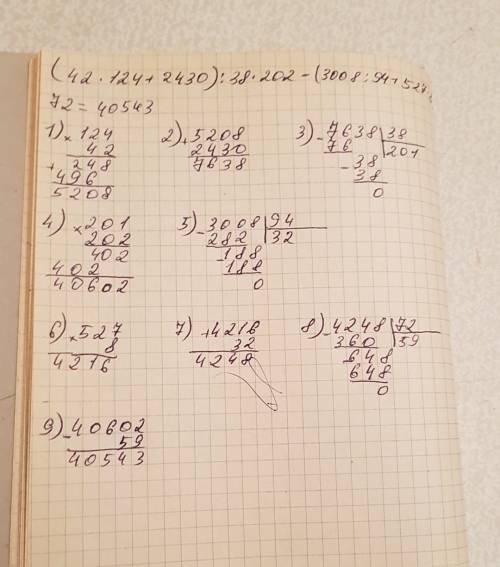 (42·124+2430):38·202-(3008:94+527
72=40543
1) ×124
42
+248
496
5208
2) +5208
2430
7638
3) -7638 38
76 201
-38
38
0
4) ×201
202
402
402
40602
5) -3008 94
282 32
-188
188
0
6) ×527
8
4216
7) +4216
32
4248
8) -4248 72
360 59
648
648
0
9) -40602
59
40543